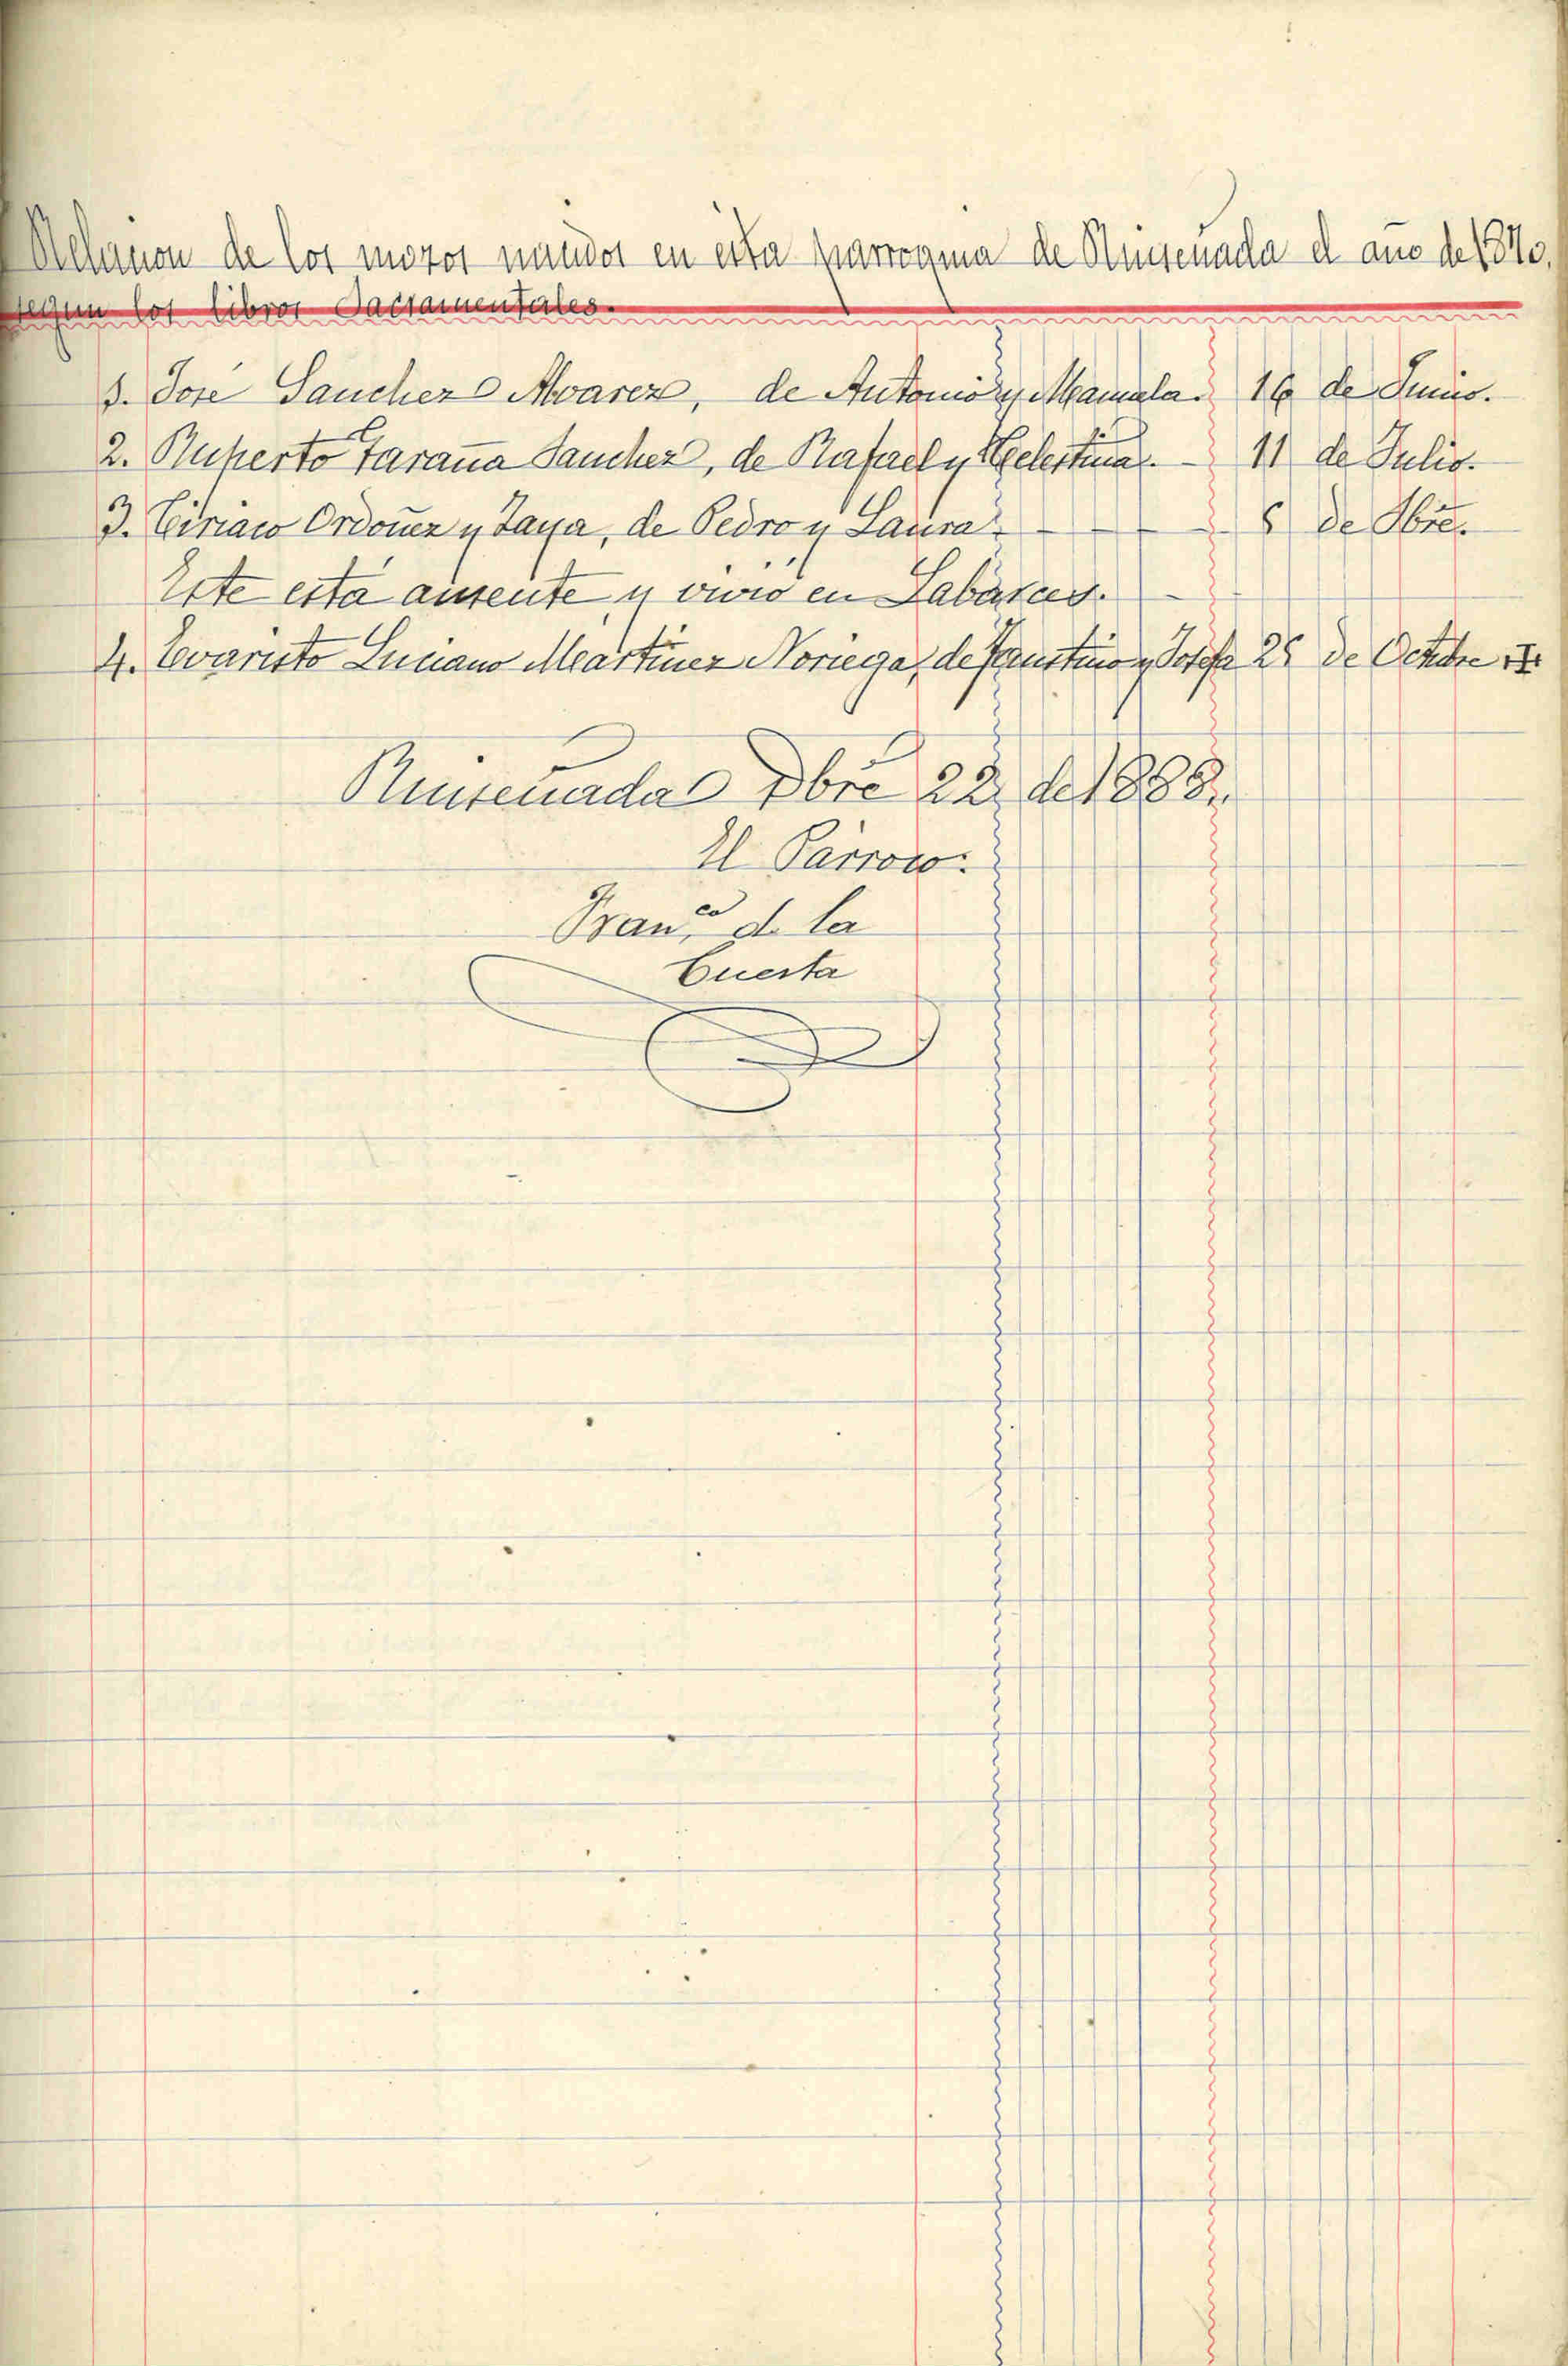 Relacion de los mozos nacidos en esta parroquia de Ruiseñada el año de 1870,
segun los libros Sacramentales.
1. José Sanchez Alvarez, de Antonio y Manuela. 16 de Junio.
2. Ruperto Taraña Sanchez, de Rafael y Celestina. - 11 de Julio.
3. Ciriaco Ordoñez y Zaya, de Pedro y Laura - - - 8 de
Este está ausente y vivió en Labarces. -
4. Evaristo Luciano Martinez Noriega, de Faustino y Josefa 25 de Octubre
Ruiseñada Dbre 22 de 1888.
El Párroco:
Franco de la
Cuesta